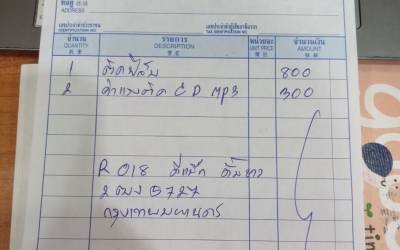 ที่อยู่
ADDRESS
เลขประจำตัวประชาชน
เลขประจำตัวผู้เสียภาษีอากร
จำนวน รายการ หน่วยละ จำนวนเงิน
QUANTITY DESCRIPTION UNIT PRICE AMOUNT
1 ติดฟิล์ม 800
2 ค่าแรงติด CD MP3 300
R 018
2ฒง 5727
กรุงเทพมหานคร